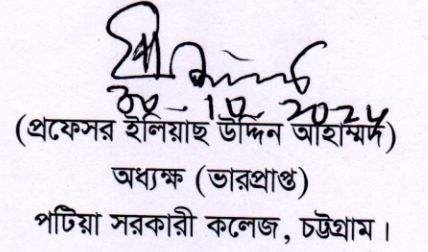 (প্রফেসর ইলিয়াছ উদ্দিন আহাম্মদ)
অধ্যক্ষ (ভারপ্রাপ্ত)
পটিয়া সরকারী কলেজ, চট্টগ্রাম।